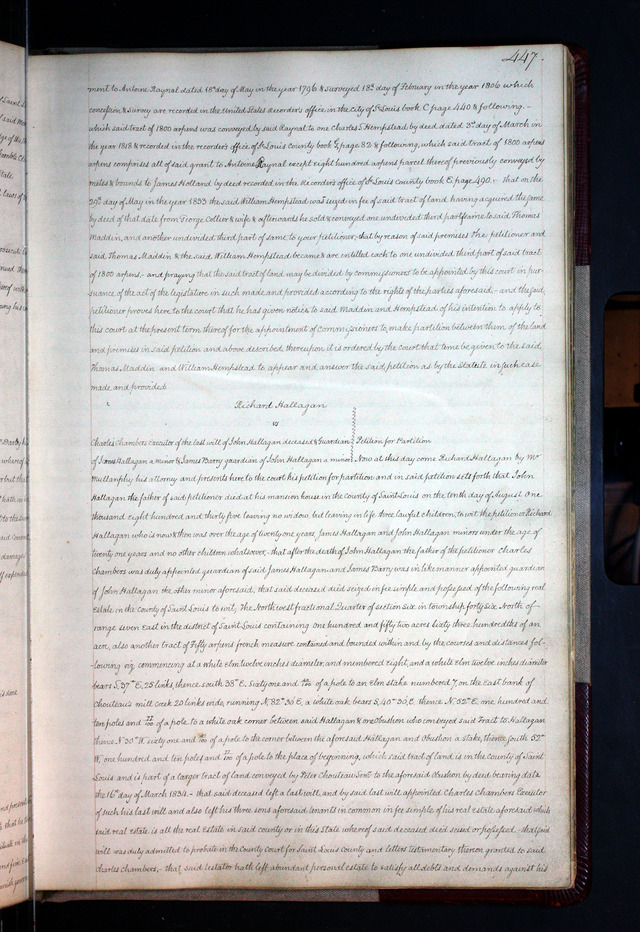 447.
ment to Antoine Raynal dated 18th day of May in the year 1796 & surveyed 18th day of February in the year 1806 which
concession & survey are recorded in the United States recorder's office in the City of St Louis book C page 440 & following. -
which said tract of 1800 arpens was conveyed by said Raynal to one Charles S. Hempstead by deed dated 3d day of March in
the year 1818 & recorded in the recorders office of St Louis county book G, page 82 & following, which said tract of 1800 arpens
arpens comprises all of said grant to Antoine Raynal except eight hundred arpens parcel thereof previously conveyed by
metes & bounds to James Holland by deed recorded in the Recorder's office of St Louis County book E, page 490, - that on the
29th day of May in the year 1833 the said William Hempstead was seized in fee of said tract of land having acquired the same
by deed of that date from George Collier & wife & afterwards he sold & conveyed one undivided third part same to said Thomas
Maddin, and another undivided third part of same to your petitioner, that by reason of said premises The petitioner and
said Thomas Maddin & the said William Hempstead became & are entitled each to one undivided third part of said tract
of 1800 arpens, - and praying that the said tract of land may be divided by commissioners to be appointed by this court in pur-
suance of the act of the legislature in such made and provided according to the rights of the parties aforesaid, - and the said
petitioner proves here to the court that he has given notice to said Maddin and Hempstead of his intention to apply to
this court at the present term thereof for the appointment of Commissioners to make partition between them of the land
and premises in said petition and above described, thereupon it is ordered by the court that time be given to the said
Thomas Maddin and William Hempstead to appear and answer the said petition as by the Statute in such case
made and provided
Richard Hallagan
vs
Charles Chambers executor of the last will of John Hallagan deceased & Guardian Petition for Partition
of James Hallagan a minor & James Barry guardian of John Hallagan a minor Now at this day come Richard Hallagan by Mr
Mullanphy his attorney and presents here to the court his petition for partition and in said petition sets forth that John
Hallagan the father of said petitioner died at his mansion house in the county of Saint Louis on the tenth day of August one
thousand eight hundred and thirty five leaving no widow, but leaving in life three lawful children, to wit the petitioner Richard
Hallagan who is now & then was over the age of twenty one years, James Hallagan and John Hallagan minors under the age of
twenty one years and no other children whatsoever, - that after the death of John Hallagan the father of the petitioner Charles
Chambers was duly appointed guardian of said James Hallagan and James Barry was in like manner appointed guardian
of John Hallagan the other minor aforesaid, that said deceased died seized in fee simple and possessed of the following real
Estate in the County of Saint Louis to wit; The North west fractional Quarter of section six in township forty six North of
range seven East in the district of Saint Louis containing one hundred and fifty two acres sixty three hundredths of an
acre, also another tract of Fifty arpens french measure contained and bounded within and by the courses and distances fol-
lowing viz; commencing at a white elm twelve inches diameter and numbered eight, and a white elm twelve inches diameter
bears S, 37° E, 25 links, thence south 38° E. Sixty one and /100 of a pole to an Elm stake numbered 7, on the East bank of
Chouteau's mill Creek 20 links wide, running N, 82° 30 E, a white oak bears S, 40° 30, E, thence N. 52° E, one hundred and
ten poles and 77/100 of a pole to a white oak corner between said Hallagan & one Obushon who conveyed said Tract to Hallagan
thence N 38° W. sixty one and /100 of a pole to the corner between the aforesaid Hallagan and Obushon a stake, thence South 52°
W, one hundred and ten poles and 77/100 of a pole to the place of beginning, which said tract of land is in the County of Saint
Louis and is part of a larger tract of land conveyed by Peter Chouteau Senr to the aforesaid Obushon by deed bearing date
the 16th day of March 1834. - that said deceased left a last will, and by said last will appointed Charles Chambers Executor
of such his last will and also left his three sons aforesaid tenants in common in fee simple of his real estate aforesaid which
said real estate is all the real Estate in said county or in this State whereof said deceased died seized or possessed - that said
will was duly admitted to probate in the County Court for Saint Louis County and letters Testamentary thereon granted to said
Charles Chambers, - that said testator hath left abundant personal estate to satisfy all debts and demands against his